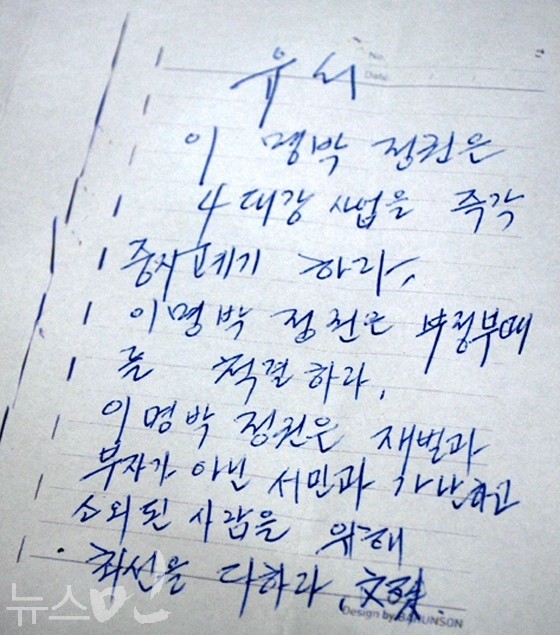 유서
No.
Date
이명박 정권은
4대강 사업을 즉각
중지 폐기 하라,
이명박 정권은 부정부패
를 척결하라,
이명박 정권은 재벌과
부자가 아닌 서민과 가난하고
소외된 사람을 위해
최선을 다하라. 文殊.
Design by BARUNSON
뉴스민